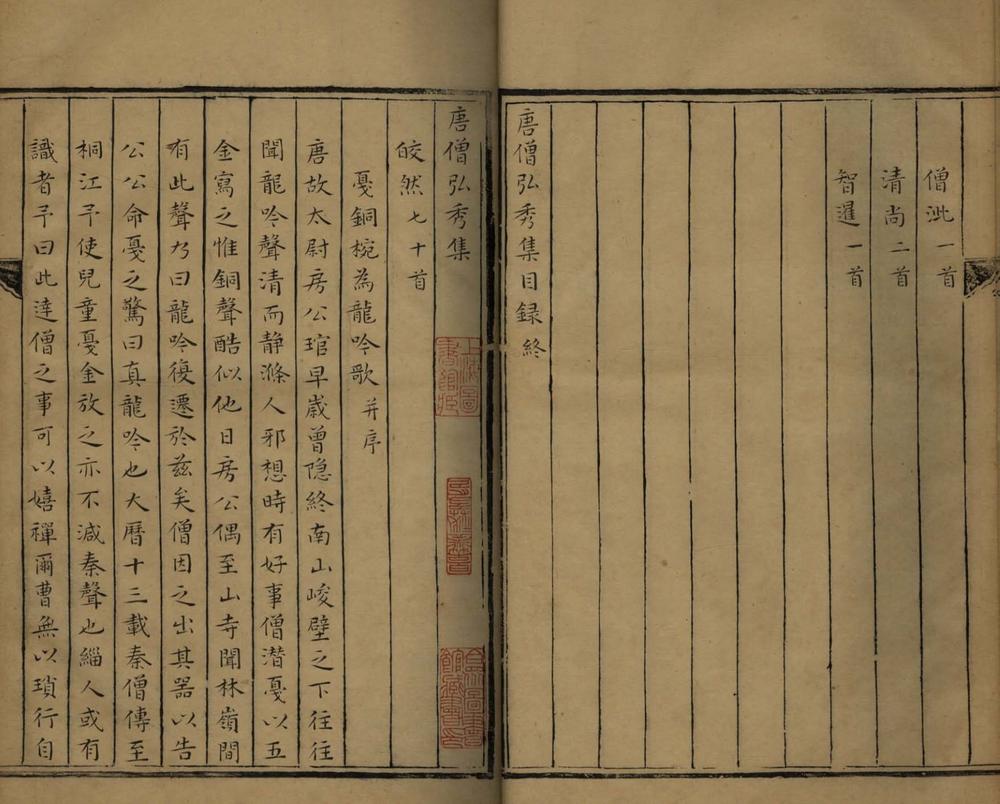 僧泚一首
清尚二首
智暹一首
唐僧弘秀集目録終
唐僧弘秀集
皎然七十首
戞銅椀為龍吟歌并序
唐故太尉房公琯早歳曽隐終南山峻壁之下往往
聞龍吟聲清而静滌人邪想時有好事僧潜戞以五
金寫之惟銅聲酷似他日房公偶至山寺聞林嶺間
有此聲乃曰龍吟復遷於兹矣僧因之出其器以告
公公命戞之驚曰真龍吟也大暦十三載秦僧傳至
桐江予使兒童戞金放之亦不减秦聲也緇人或有
識者予曰此達僧之事可以嬉禪爾曹無以瑣行自